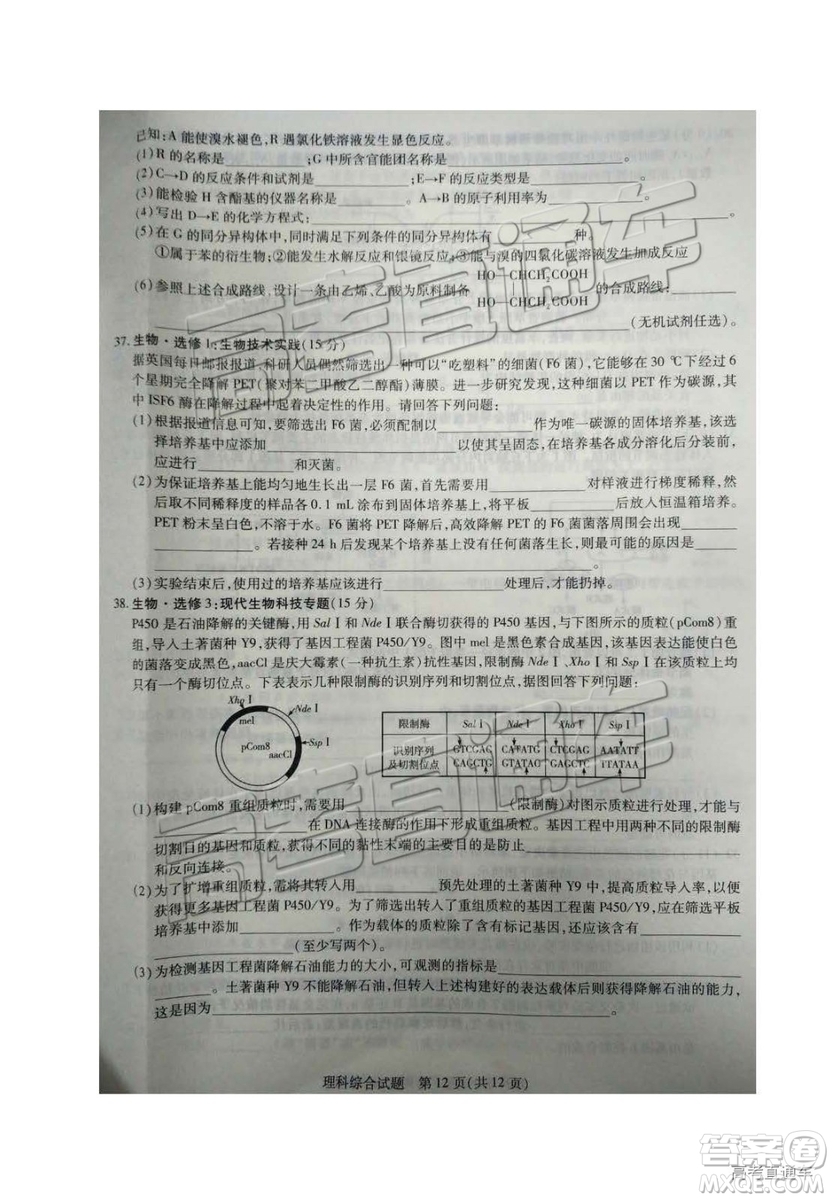 已知:A 能使溴水褪色,R 遇氯化铁溶液发生显色反应。
(1)R 的名称是________;G 中所含官能团名称是________。
(2)C→D 的反应条件和试剂是________;E→F 的反应类型是________。
(3)能检验 H 含酯基的仪器名称是________。A→B 的原子利用率为________。
(4)写出 D→E 的化学方程式:________
(5)在 G 的同分异构体中,同时满足下列条件的同分异构体有________种。
①属于苯的衍生物;②能发生水解反应和银镜反应;③能与溴的四氯化碳溶液发生加成反应
HO—CHCH₂COOH
(6)参照上述合成路线,设计一条由乙烯、乙酸为原料制备 的合成路线:________
HO—CHCH₂COOH
________(无机试剂任选)。
37.生物·选修 1:生物技术实践(15 分)
据英国每日邮报报道,科研人员偶然筛选出一种可以“吃塑料”的细菌(F6 菌),它能够在 30 ℃下经过 6
个星期完全降解 PET(聚对苯二甲酸乙二醇酯)薄膜。进一步研究发现,这种细菌以 PET 作为碳源,其
中 ISF6 酶在降解过程中起着决定性的作用。请回答下列问题:
(1)根据报道信息可知,要筛选出 F6 菌,必须配制以________作为唯一碳源的固体培养基,该选
择培养基中应添加________以使其呈固态,在培养基各成分溶化后分装前,
应进行________和灭菌。
(2)为保证培养基上能均匀地生长出一层 F6 菌,首先需要用________对样液进行梯度稀释,然
后取不同稀释度的样品各 0.1 mL 涂布到固体培养基上,将平板________后放入恒温箱培养。
PET 粉末呈白色,不溶于水。F6 菌将 PET 降解后,高效降解 PET 的 F6 菌菌落周围会出现________
________。若接种 24 h 后发现某个培养基上没有任何菌落生长,则最可能的原因是________
________
(3)实验结束后,使用过的培养基应该进行________处理后,才能扔掉。
38.生物·选修 3:现代生物科技专题(15 分)
P450 是石油降解的关键酶,用 Sal Ⅰ 和 Nde Ⅰ 联合酶切获得的 P450 基因,与下图所示的质粒(pCom8)重
组,导入土著菌种 Y9,获得了基因工程菌 P450/Y9。图中 mel 是黑色素合成基因,该基因表达能使白色
的菌落变成黑色,aacCl 是庆大霉素(一种抗生素)抗性基因,限制酶 Nde Ⅰ、Xho Ⅰ 和 Ssp Ⅰ 在质粒上均
只有一个酶切位点。下表表示几种限制酶的识别序列和切割位点。据图回答下列问题:
Xho Ⅰ
Nde Ⅰ
mel
pCom8
Ssp Ⅰ
aacCl
限制酶 Sal Ⅰ Nde Ⅰ Xho Ⅰ Ssp Ⅰ
识别序列 GTCGAC CATATG CTCGAG AATATT
及切割位点 CAGCTG GTATAC GAGCTC TTATAA
(1)构建 pCom8 重组质粒时,需要用________(限制酶)对图示质粒进行处理,才能与
________在 DNA 连接酶的作用下形成重组质粒。基因工程中用两种不同的限制酶
切割目的基因和质粒,获得不同的黏性末端的主要目的是防止________
和反向连接。
(2)为了扩增重组质粒,需将其转入用________预先处理的土著菌种 Y9 中,提高质粒导入率,以
获得更多基因工程菌 P450/Y9。为了筛选出转入了重组质粒的基因工程菌 P450/Y9,应在筛选平板
培养基中添加________。作为载体的质粒除了含有标记基因,还应含有________
________(至少写两个)。
(3)为检测基因工程菌降解石油能力的大小,可观测的指标是________
________。土著菌种 Y9 不能降解石油,但转入上述构建好的表达载体后则获得降解石油的能力,
这是因为________
理科综合试题 第 12 页(共 12 页)
高考直通车
答案圈
高考直通车
MXQE.COM